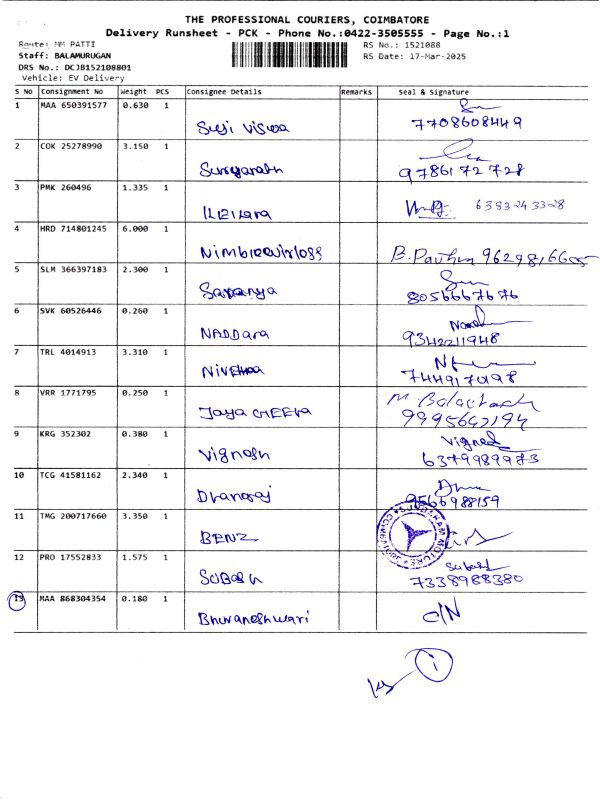 THE PROFESSIONAL COURIERS, COIMBATORE
Delivery Runsheet - PCK - Phone No.:0422-3505555 - Page No.:1
Route: MM PATTI
RS No.: 1521088
Staff: BALAMURUGAN
RS Date: 17-Mar-2025
DRS No.: DCJB152108801
Vehicle: EV Delivery
S No Consignment No Weight PCS Consignee Details Remarks Seal & Signature
1 MAA 650391577 0.630 1 Suji Viswa
7708608449
2 COK 25278990 3.150 1 Suryarath
9786172728
3 PMK 260496 1.335 1
6383243328
4 HRD 714801245 6.000 1
B. Pavthra 9629816605
5 SLM 366397183 2.300 1 Saranya
8056667676
6 SVK 60526446 0.260 1 NADDara
9342211948
7 TRL 4014913 3.310 1
7444917098
8 VRR 1771795 0.250 1 Jaya GEETA
M Balachandr
9995642194
9 KRG 352302 0.380 1 Vignesh
Vignesh
6379989973
10 TCG 41581162 2.340 1 Dhanaraj
9566988159
11 TMG 200717660 3.350 1 BENZ
SUNDARAM MOTORS COIMBATORE
12 PRO 17552833 1.575 1 SUBASH
Subash
7338988380
13 MAA 868304354 0.180 1 Bhuvaneshwari C/N
1